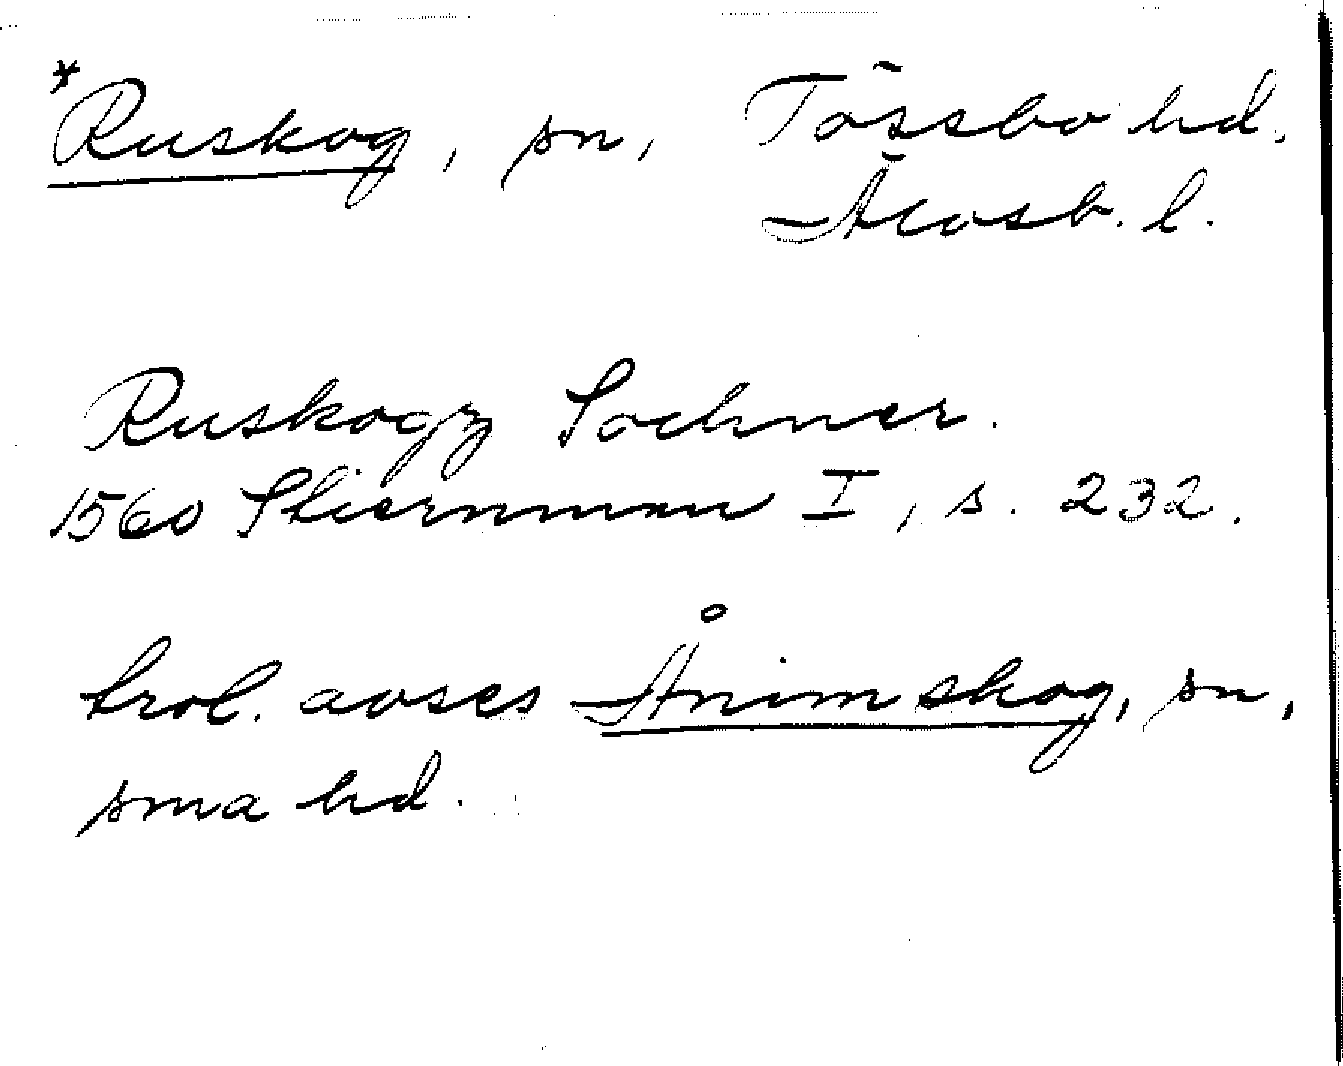 *Ruskog, sn, Tössbo hd.
Älvsb. l.
Ruskogz Sochner.
1560 Stiernman I, s. 232.
trol. avses Ånimskog, sn,
sma hd.